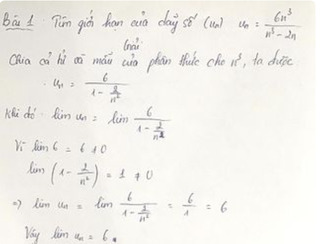 Bài 1 : Tìm giới hạn của dãy số (un) un = 6n³/(n³ - 2n)
Chia cả tử và mẫu của phân thức cho n³, ta được
un = 6/(1 - 2/n²)
Khi đó : lim un = lim 6/(1 - 2/n²)
Vì lim 6 = 6 ≠ 0
lim (1 - 2/n²) = 1 ≠ 0
=> lim un = lim 6/(1 - 2/n²) = 6/1 = 6
Vậy lim un = 6.